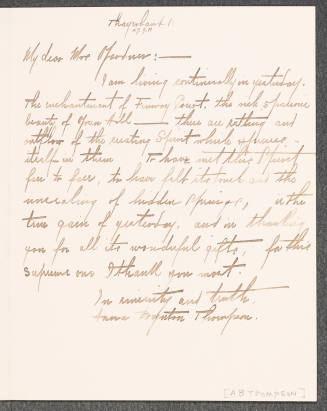 My dear Mrs Gardner:—
I am living continually in yesterday.
The enchantment of Fenway Court, the rich spacious
beauty of Your Hall — these are setting and
outflow of the creating Spirit which expresses
itself in them. To have met this Spirit
face to face, to have felt its rush and the
unsealing of hidden springs, is the
true gain of yesterday, and in thanking
you for all its wonderful gifts, for this
supreme one I thank you most.
In sincerity and truth,
Boynton Thompson.
[A B THOMPSON]